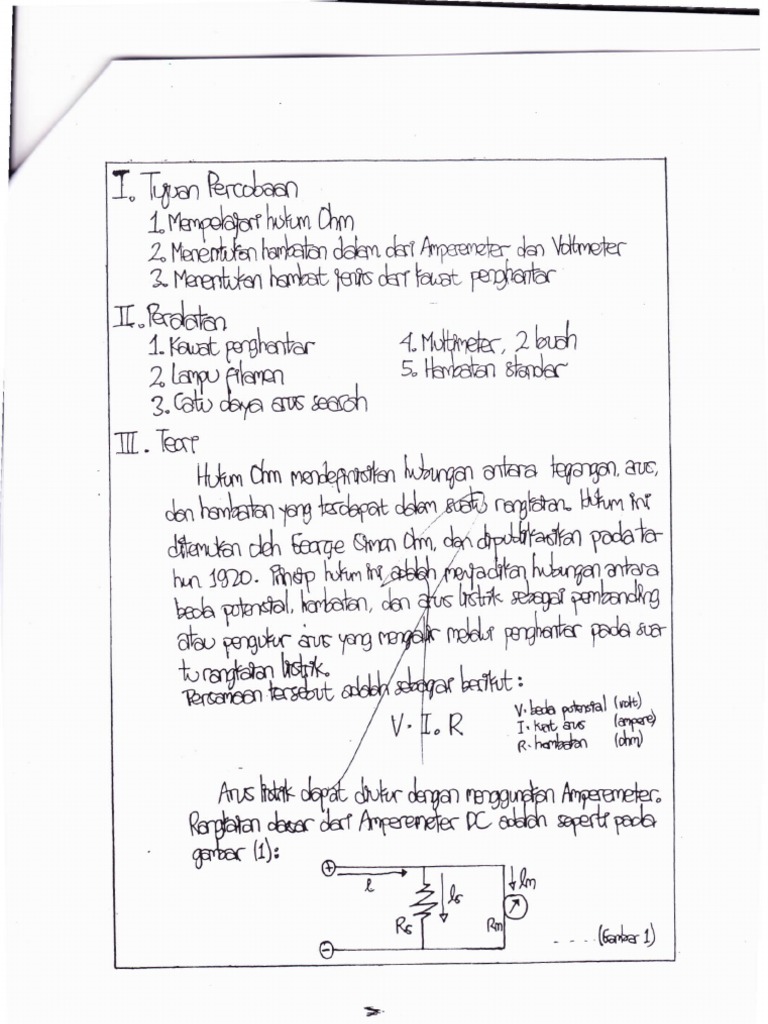 I. Tujuan Percobaan
1. Mempelajari hukum Ohm
2. Menentukan hambatan dalam dari Amperemeter dan Voltmeter
3. Menentukan hambat jenis dari kawat penghantar
II. Peralatan
1. Kawat penghantar
2. Lampu filamen
3. Catu daya arus searah
4. Multimeter, 2 buah
5. Hambatan standar
III. Teori
Hukum Ohm mendefinisikan hubungan antara tegangan, arus,
dan hambatan yang terdapat dalam suatu rangkaian. Hukum ini
ditemukan oleh George Simon Ohm, dan dipublikasikan pada ta-
hun 1920. Prinsip hukum ini adalah menjadikan hubungan antara
beda potensial, hambatan, dan arus listrik sebagai pembanding
atau pengukur arus yang mengalir melalui penghantar pada sua-
tu rangkaian listrik.
Persamaan tersebut adalah sebagai berikut:
V = I . R
V = beda potensial (volt)
I = kuat arus (ampere)
R = hambatan (ohm)
Arus listrik dapat diukur dengan menggunakan Amperemeter.
Rangkaian dasar dari Amperemeter DC adalah seperti pada
gambar (1):
+
I
Is
Im
Rs
Rm
-
.... (Gambar 1)